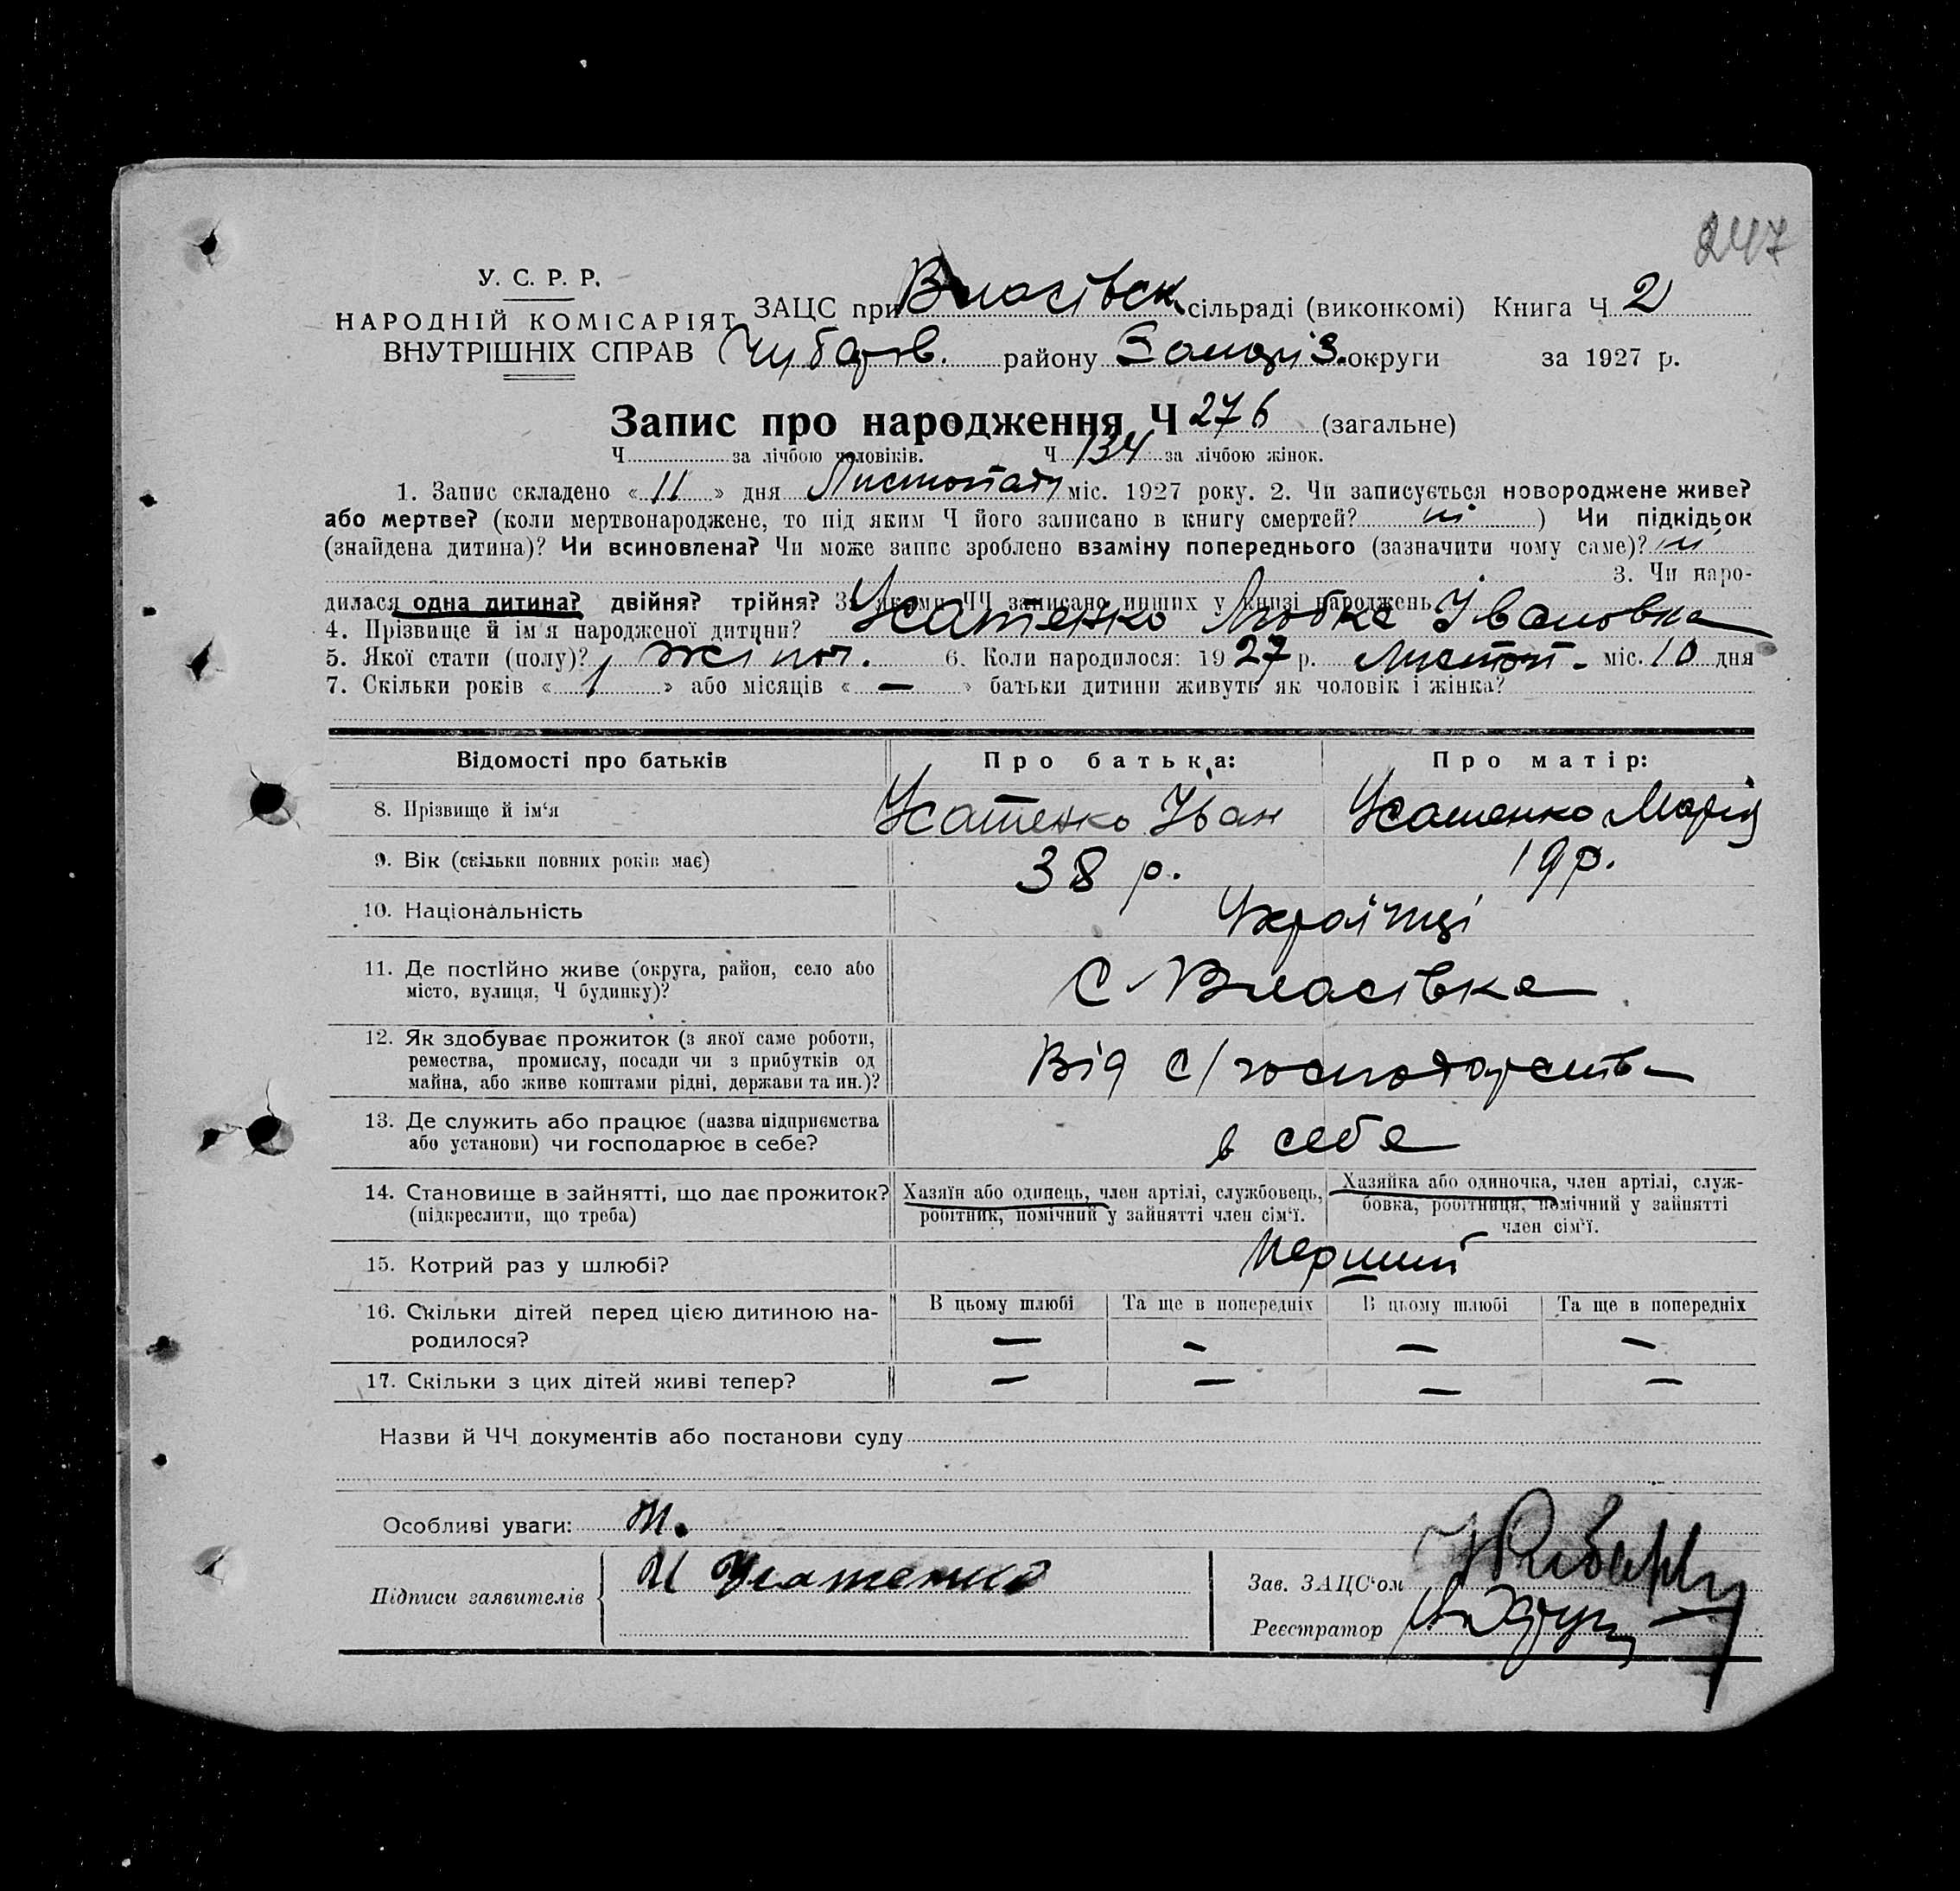 247
У. С. Р. Р.
НАРОДНІЙ КОМІСАРІЯТ
ВНУТРІШНІХ СПРАВ
ЗАЦС при Власівск сільраді (виконкомі) Книга Ч 2
Чубарів. району Запоріз. округи за 1927 р.
Запис про народження Ч 276 (загальне)
Ч за лічбою чоловіків. Ч 134 за лічбою жінок.
1. Запис складено « 11 » дня Листопаду міс. 1927 року. 2. Чи записується новороджене живе?
або мертве? (коли мертвонароджене, то під яким Ч його записано в книгу смертей? ні ) Чи підкідьок
(знайдена дитина)? Чи всиновлена? Чи може запис зроблено взаміну попереднього (зазначити чому саме)? ні
3. Чи наро-
дилася одна дитина? двійня? трійня? За якими ЧЧ записано инших у книзі народжень
4. Прізвище й ім'я народженої дитини? Усатенко Любка Івановка
5. Якої стати (полу)? жіноч. 6. Коли народилося: 1927 р. Листоп. міс. 10 дня
7. Скільки років « 1 » або місяців « — » батьки дитини живуть як чоловік і жінка?
Відомості про батьків Про батька: Про матір:
8. Прізвище й ім'я Усатенко Іван Усатенко Марія
9. Вік (скільки повних років має) 38 р. 19 р.
10. Національність Українці
11. Де постійно живе (округа, район, село або
місто, вулиця, Ч будинку)? С Власівка
12. Як здобуває прожиток (з якої саме роботи,
ремества, промислу, посади чи з прибутків од
майна, або живе коштами рідні, держави та ин.)? Від С/господарства
13. Де служить або працює (назва підприємства
або установи) чи господарює в себе? в себе
14. Становище в зайнятті, що дає прожиток?
(підкреслити, що треба)
Хазяїн або одинець, член артілі, службовець,
робітник, помічний у зайнятті член сім'ї.
Хазяйка або одиночка, член артілі, служ-
бовка, робітниця, помічний у зайнятті
член сім'ї.
15. Котрий раз у шлюбі? перший
16. Скільки дітей перед цією дитиною на-
родилося?
В цьому шлюбі Та ще в попередніх В цьому шлюбі Та ще в попередніх
— — — —
17. Скільки з цих дітей живі тепер? — — — —
Назви й ЧЧ документів або постанови суду
Особливі уваги:
Підписи заявителів И Усатенко
Зав. ЗАЦС'ом
Реєстратор